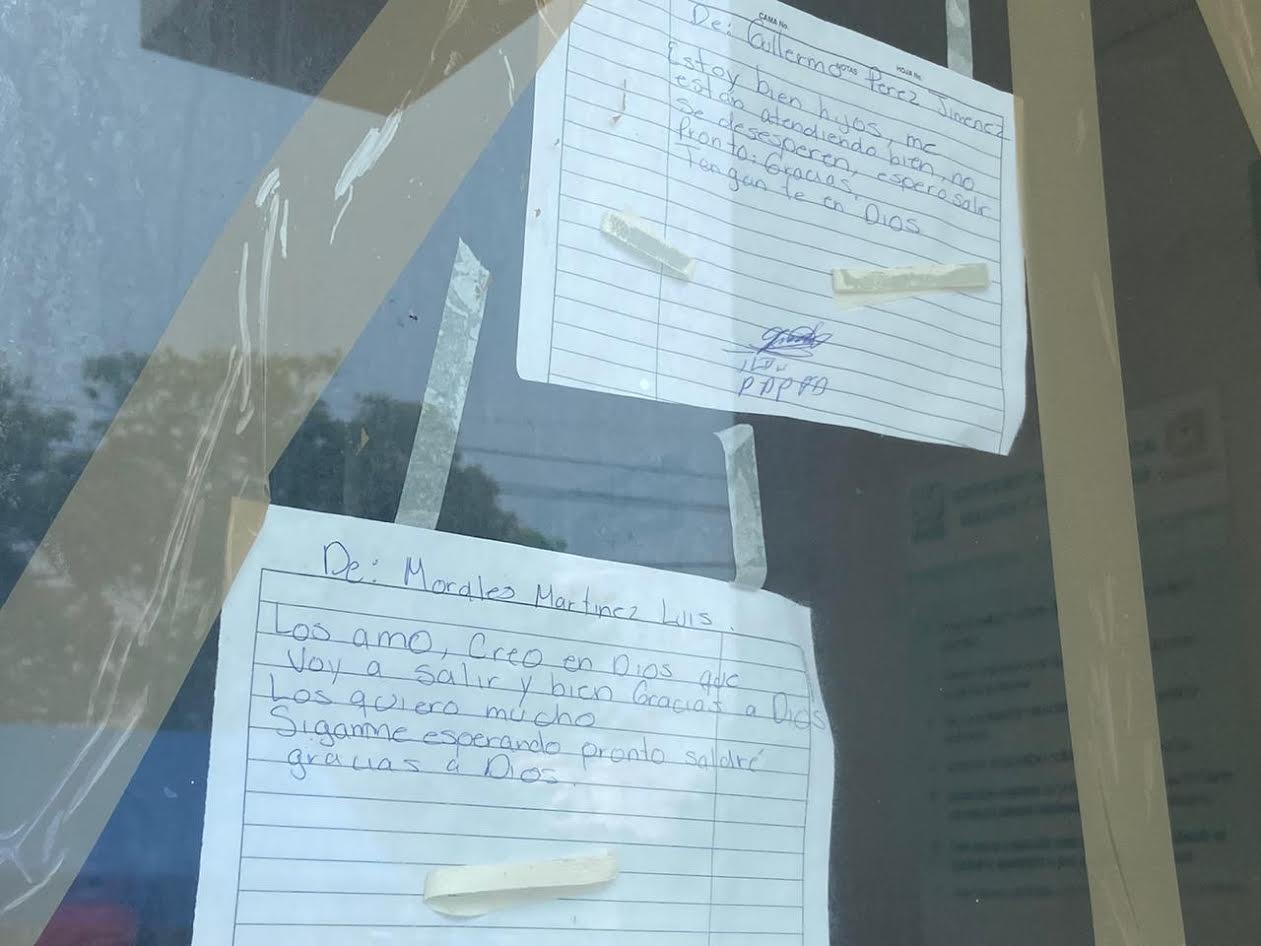 CAMA No.
De: Guillermo Perez Jimenez
NOTAS
HOJA No.
Estoy bien hijos, me
están atendiendo bien, no
se desesperen, espero salir
Pronto. Gracias
Tengan fe en Dios
PAPA
De: Morales Martinez Luis.
Los amo, Creo en Dios que
Voy a salir y bien Gracias a Dios
Los quiero mucho
Siganme esperando pronto saldré
gracias a Dios.